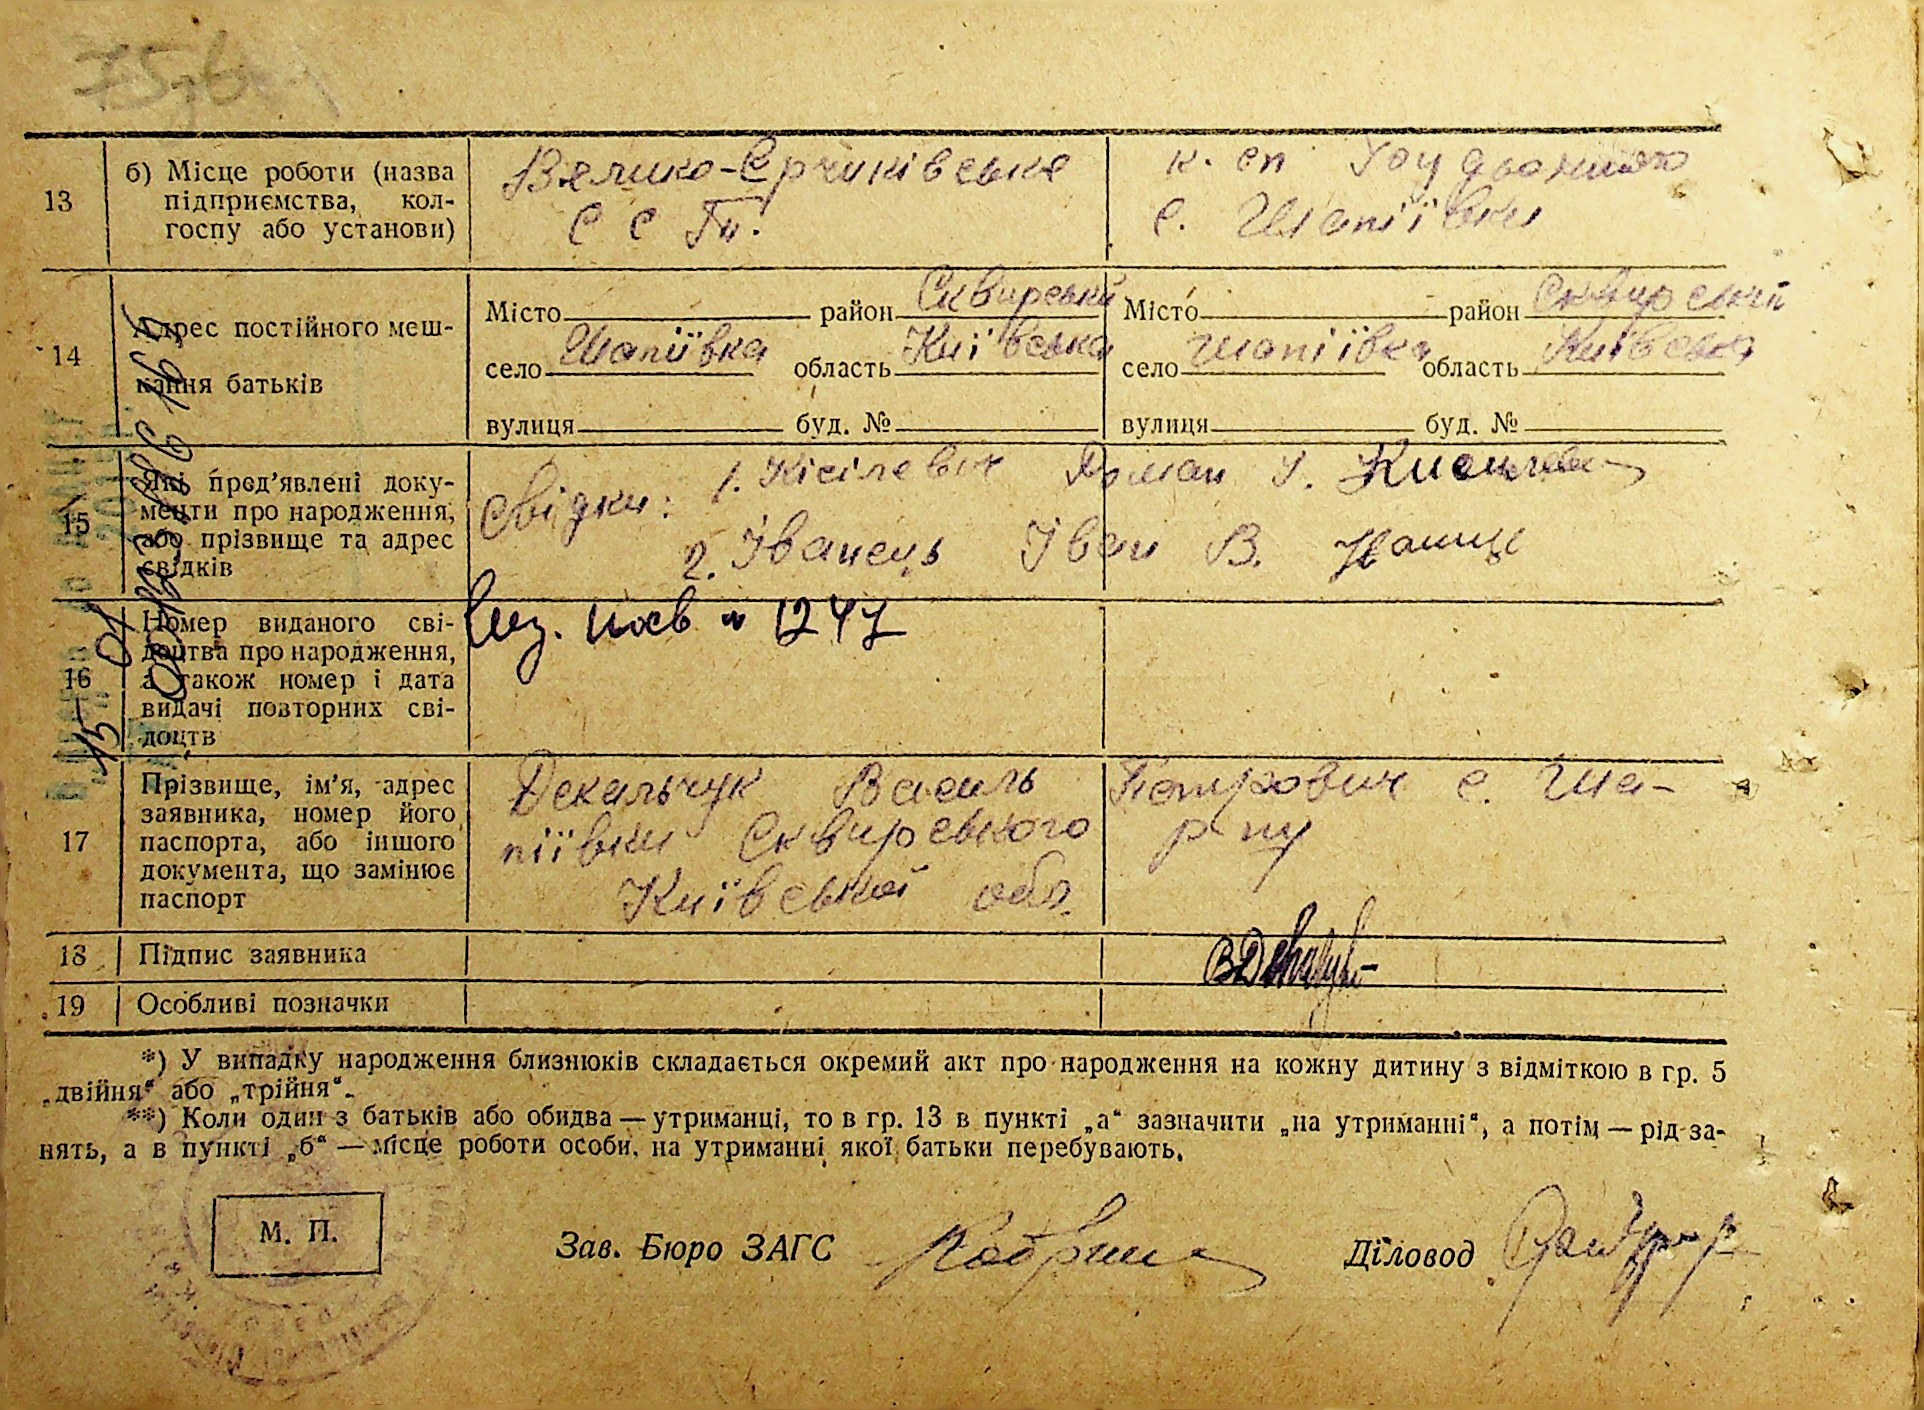 13
б) Місце роботи (назва
підприємства, кол-
госпу або установи)
Велико-Єрчиківське
С С Т.
к. сп
с. Шапіївки
14
Адрес постійного меш-
кання батьків
Місто район Сквирський
село Шапіївка область Київська
вулиця буд. №
Місто район Сквирський
село Шапіївка область Київська
вулиця буд. №
15
Які пред'явлені доку-
менти про народження,
або прізвище та адрес
свідків
Свідки: 1. Кісілевич Роман У.
2. Іванець Іван В.
16
Номер виданого сві-
доцтва про народження,
а також номер і дата
видачі повторних сві-
доцтв
1247
17
Прізвище, ім'я, адрес
заявника, номер його
паспорта, або іншого
документа, що замінює
паспорт
Декальчук Василь Петрович с. Ша-
піївки Сквирського р-ну
Київської обл.
18
Підпис заявника
19
Особливі позначки
*) У випадку народження близнюків складається окремий акт про народження на кожну дитину з відміткою в гр. 5
„двійня“ або „трійня“.
**) Коли один з батьків або обидва — утриманці, то в гр. 13 в пункті „а“ зазначити „на утриманні“, а потім — рід за-
нять, а в пункті „б“ — місце роботи особи, на утриманні якої батьки перебувають.
М. П.
Зав. Бюро ЗАГС
Діловод